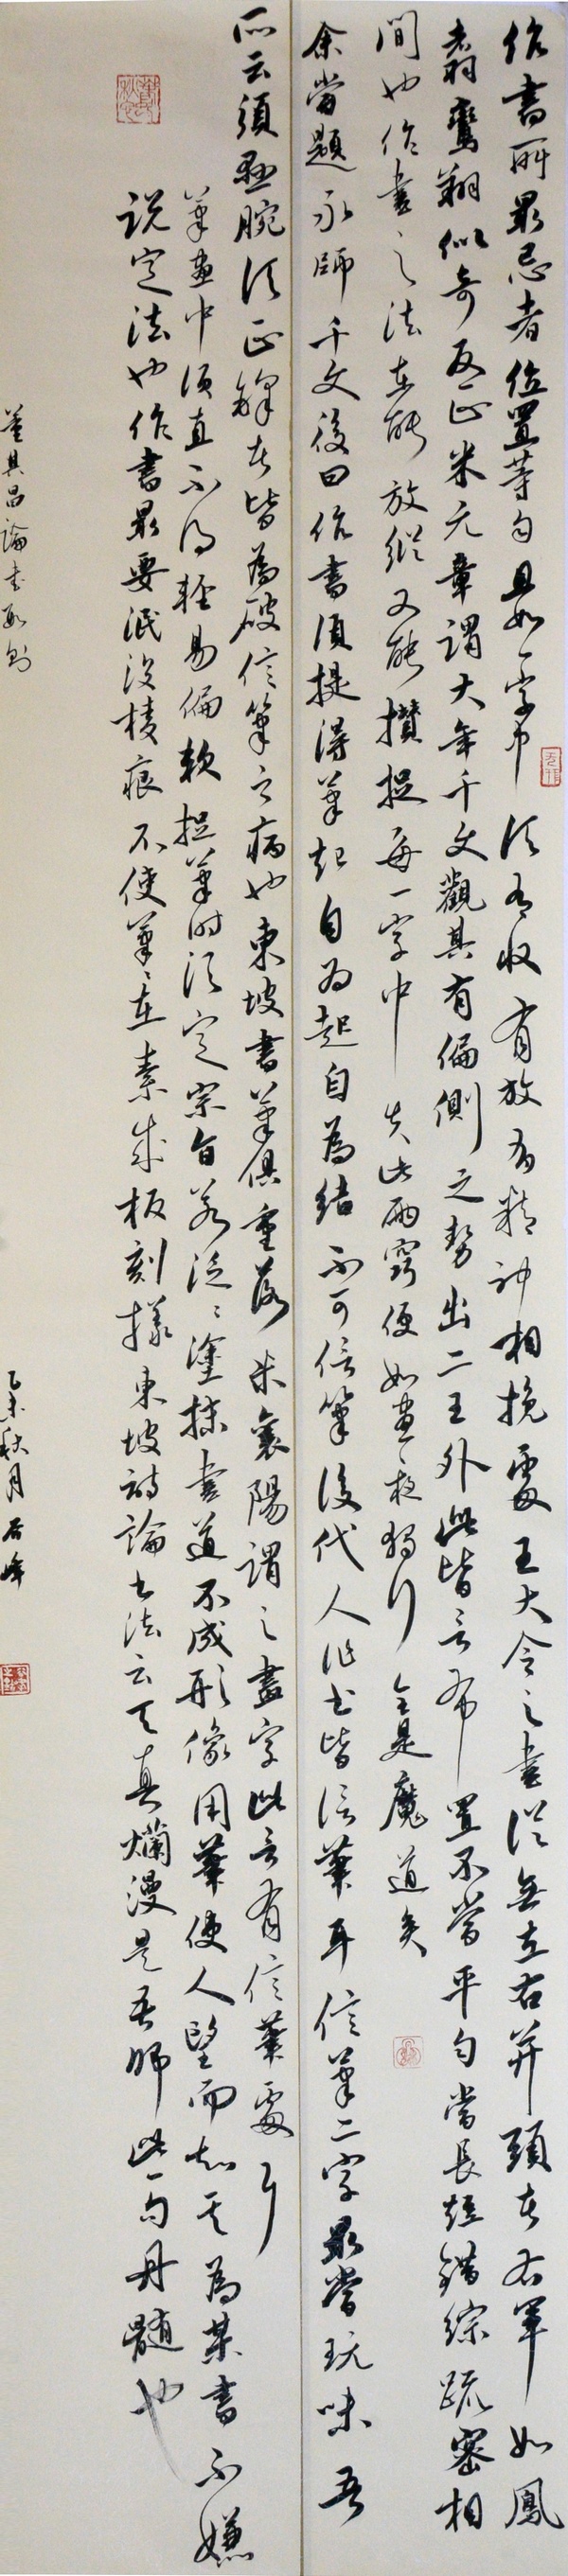 作書所最忌者位置等勻且如一字中須有收有放有精神相挽處王大令之書從無左右並頭者右軍如鳳
翥鸞翔似奇反正米元章謂大年千文觀其有偏側之勢出二王外此皆言布置不當平勻當長短錯綜疏密相
間也作書之法在能放縱又能攢捉每一字中失此兩竅便如晝夜獨行全是魔道矣
余嘗題永師千文後曰作書須提得筆起自為起自為結不可信筆後代人作書皆信筆耳信筆二字最當玩味吾
所云須懸腕須正鋒者皆為破信筆之病也東坡書筆俱重落米襄陽謂之畫字此言有信筆處耳
筆畫中須直不得輕易偏軟捉筆時須定宗旨若泛泛塗抹書道不成形像用筆使人望而知其為某書不嫌
說定法也作書最要泯沒棱痕不使筆筆在素成板刻樣東坡詩論書法云天真爛漫是吾師此一句丹髓也
董其昌論書數則
乙未秋月 石峰